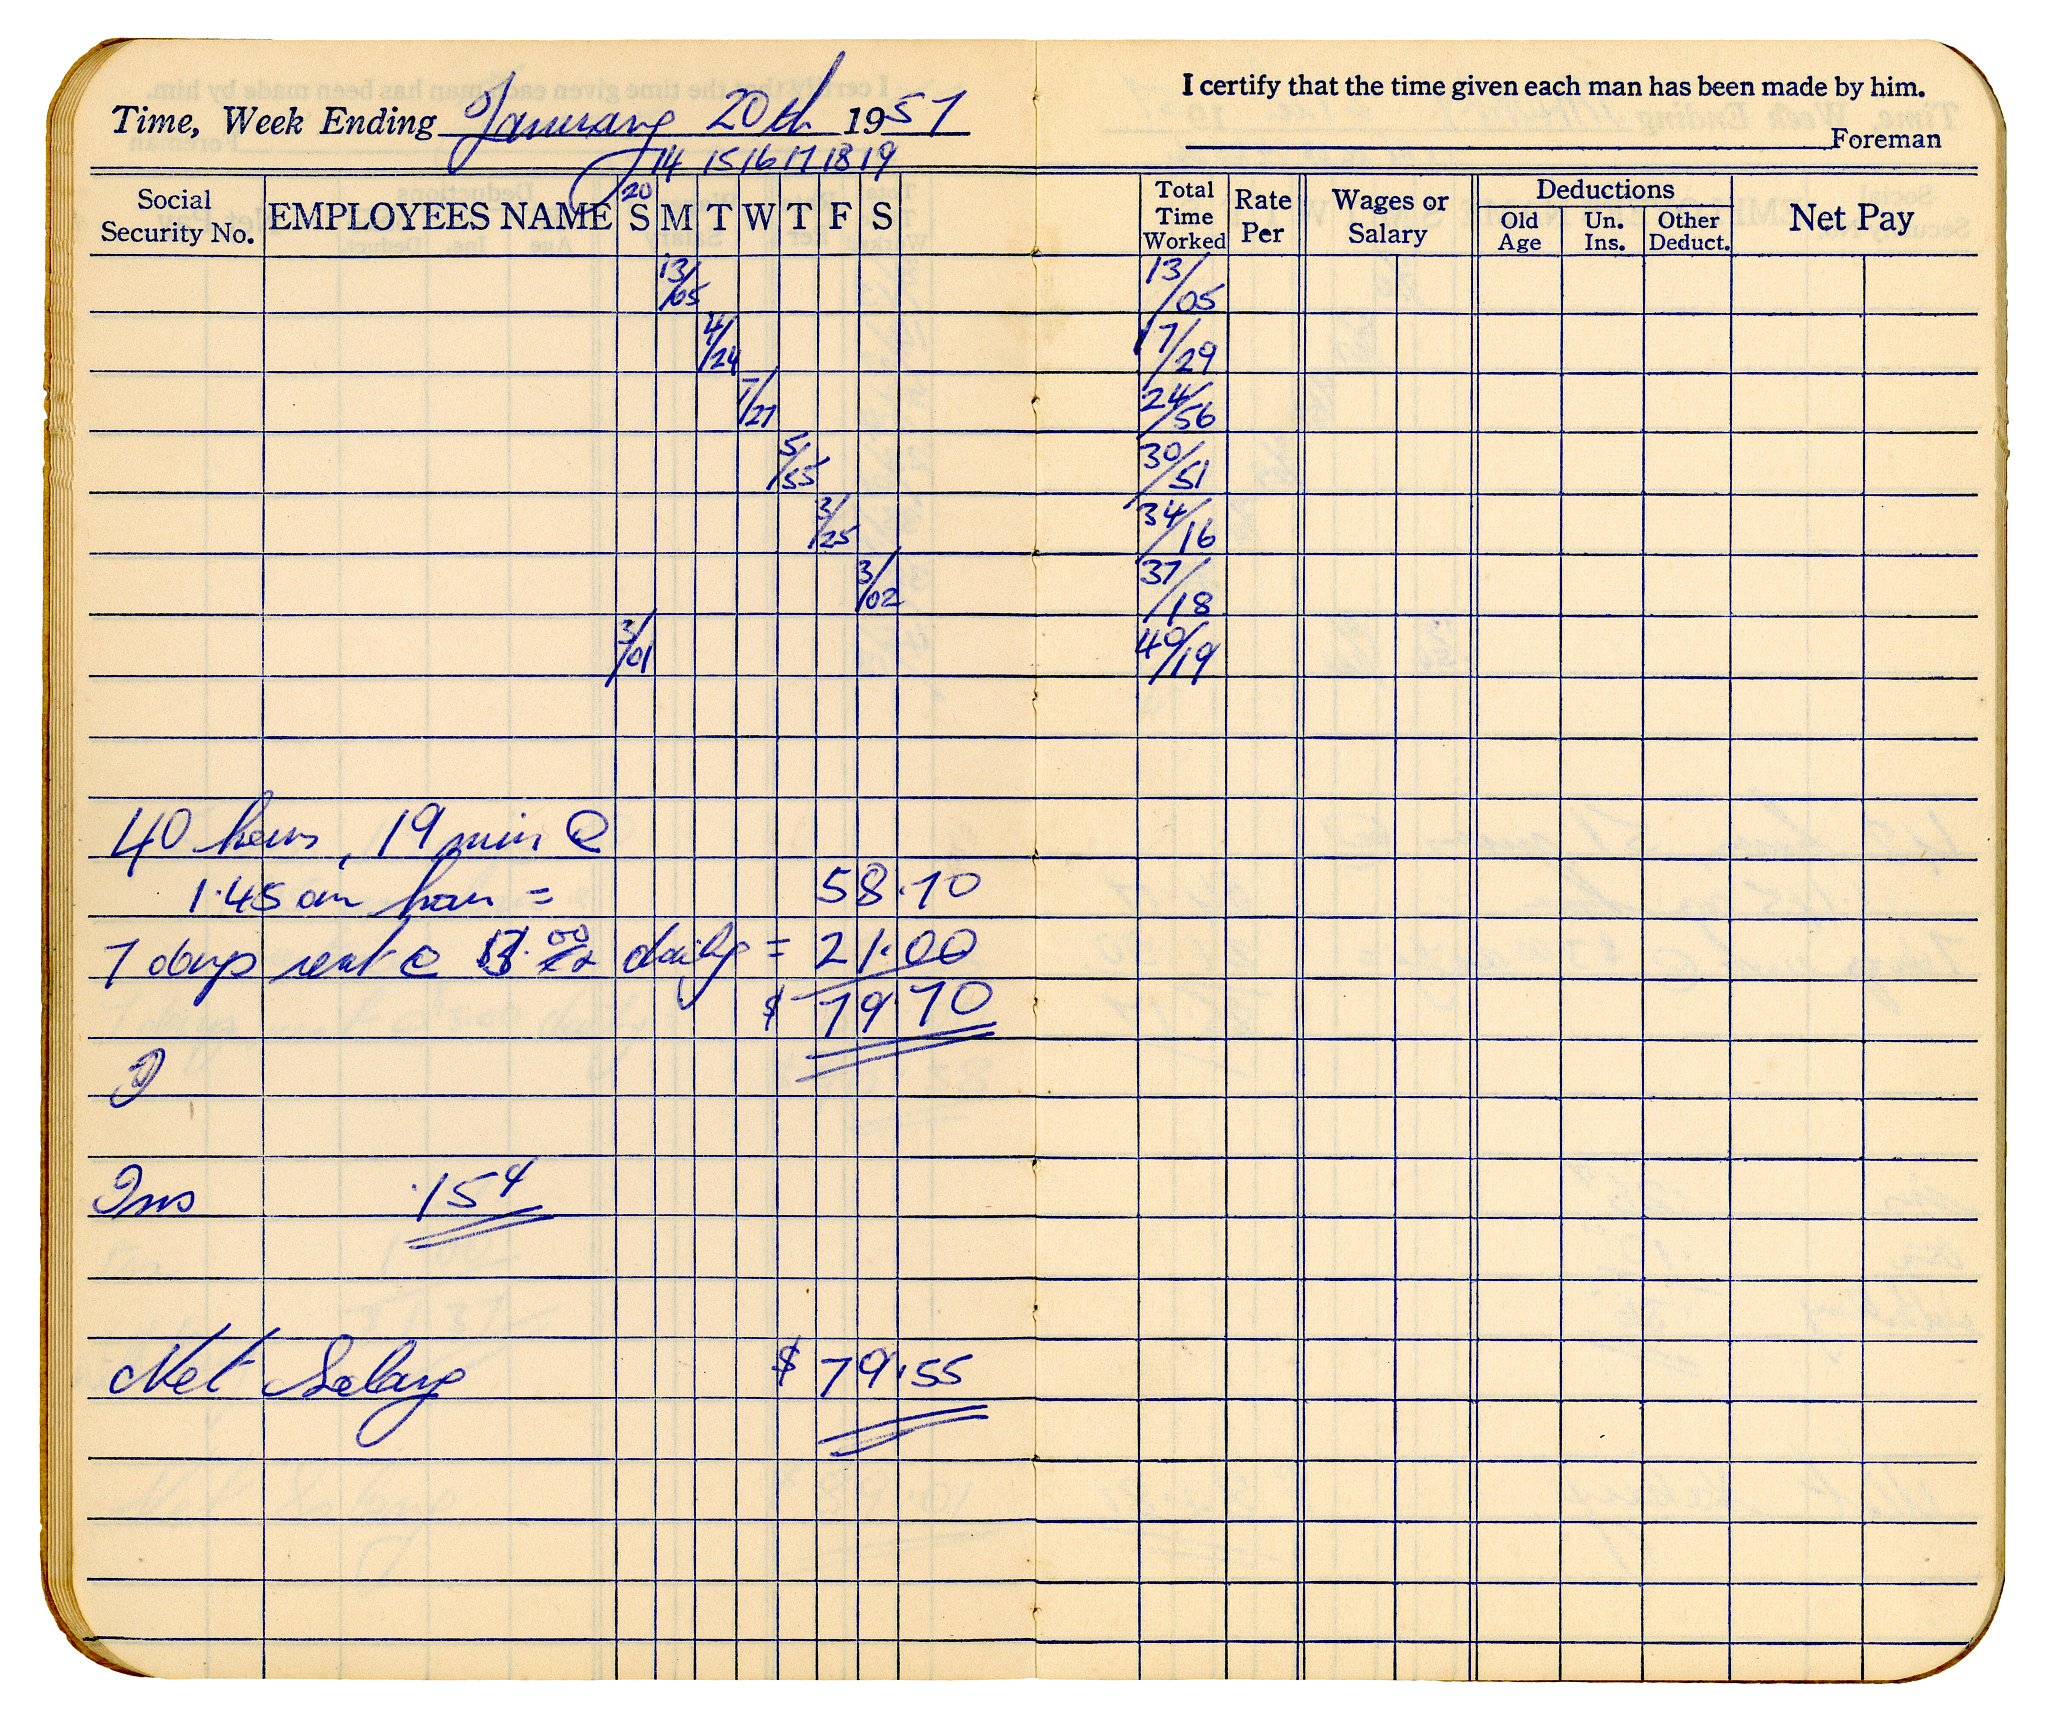 I certify that the time given each man has been made by him.
Time, Week Ending January 20th 1957
Foreman
14 15 16 17 18 19
20
Social Security No. EMPLOYEES NAME S M T W T F S Total Time Worked Rate Per Wages or Salary Deductions Old Age Un. Ins. Other Deduct. Net Pay
13/05 13/05
4/24 17/29
7/27 24/56
5/55 30/51
3/25 34/16
3/02 37/18
3/01 40/19
40 hours, 19 min @
1.45 an hour = 58.70
7 days rent @ 3.00 daily = 21.00
$ 79.70
Ins .15
Net Salary $ 79.55